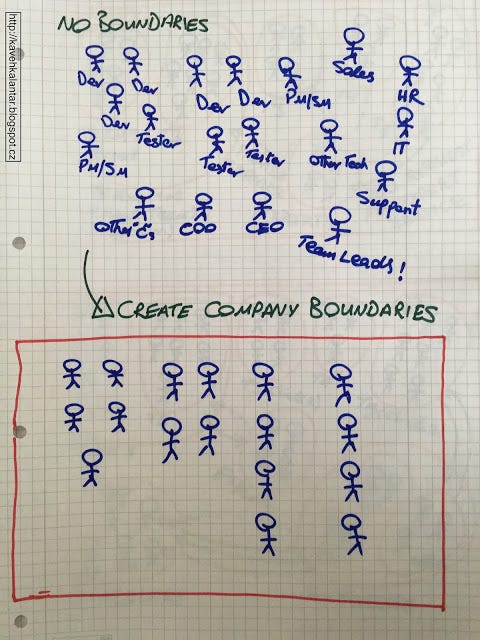 http://kavehkalantar.blogspot.cz
NO BOUNDARIES
Dev
Dev
Dev
Dev
Dev
PM/SM
Sales
HR
Tester
Tester
Tester
Other Tech
IT
PM/SM
Support
Other "C"s
COO
CEO
Team Leads!
CREATE COMPANY BOUNDARIES